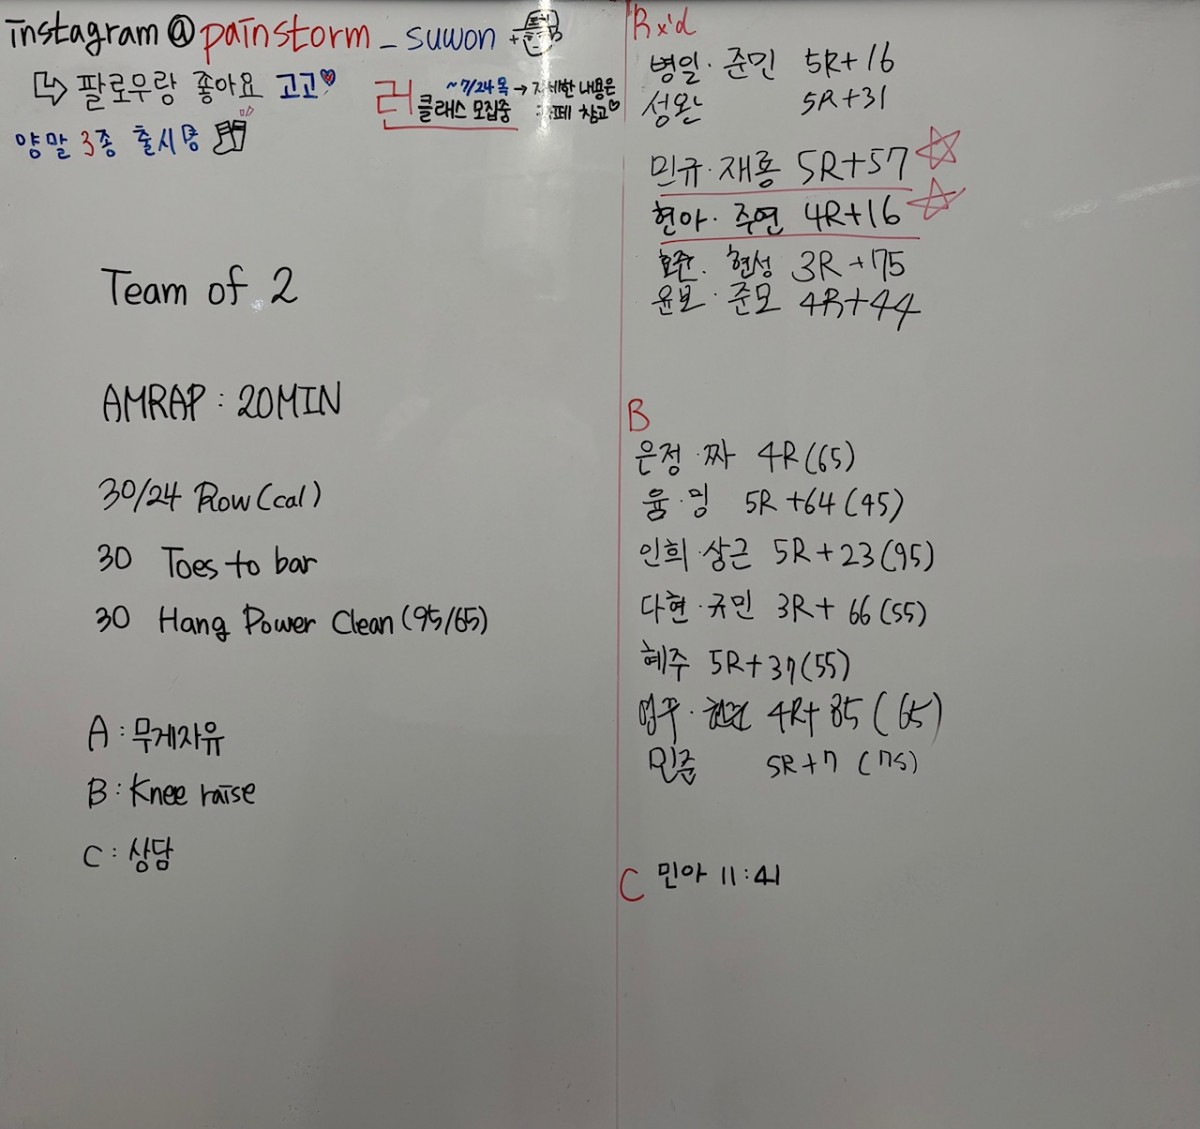 instagram@painstorm_suwon
팔로우랑 좋아요 고고
~7/24 목 → 자세한 내용은
러 클래스 모집중 카페 참고
양말 3종 출시
Team of 2
AMRAP : 20MIN
30/24 Row (cal)
30 Toes to bar
30 Hang Power Clean (95/65)
A : 무게자유
B : Knee raise
C : 상담
Rx'd
병일 · 준민 5R+16
성완 5R+31
민규 · 재룡 5R+57
현아 · 주연 4R+16
호준 · 현성 3R+75
윤보 · 준모 4R+44
B
은정 · 짜 4R (65)
윰 · 밍 5R +64 (45)
인희 · 상근 5R + 23 (95)
다현 · 규민 3R + 66 (55)
혜주 5R+37 (55)
4R+ 85 (65)
민준 5R+7 (75)
C 민아 11:41